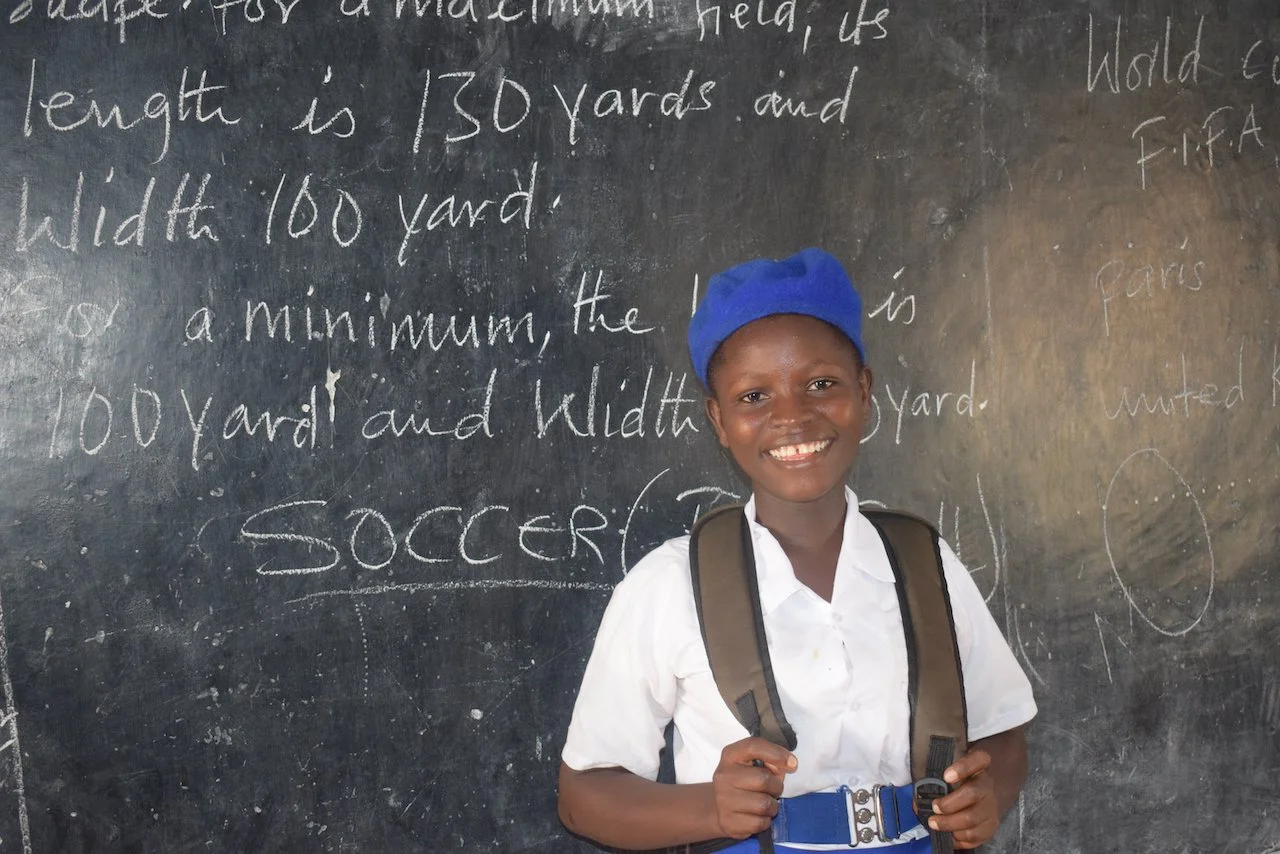 for a maximum field, its
length is 130 yards and
Width 100 yard.
For a minimum, the is
100 yard and Width yard.
SOCCER (
World
F.I.F.A
paris
united